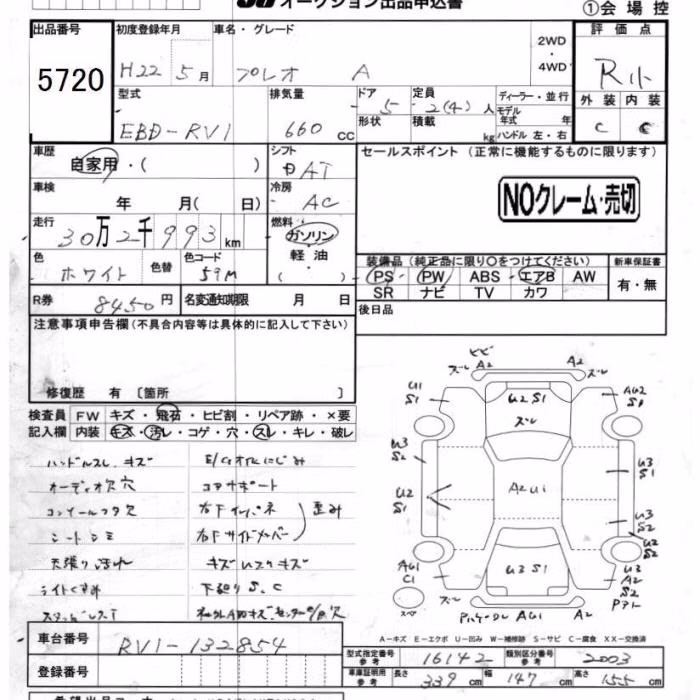 オークション出品申込書
①会場控
出品番号
5720
初度登録年月
車名・グレード
H22 5月
プレオ A
2WD
・
4WD
評価点
R小
外装 内装
C C
型式
EBD-RV1
排気量
660 cc
ドア
5
定員
2(4)人
形状
積載
kg
ディーラー・並行
モデル
年式 年
ハンドル 左・右
車歴
自家用・( )
シフト
AT
車検
年 月( 日)
冷房
AC
走行
30万2千993km
燃料
ガソリン
・
軽油
( )
色
ホワイト
色替
色コード
59M
セールスポイント (正常に機能するものに限ります)
NOクレーム・売切
装備品(純正品に限り○をつけてください)
PS PW ABS エアB AW
SR ナビ TV カワ
新車保証書
有・無
後日品
R券
8450円
名変通知期限 月 日
注意事項申告欄(不具合内容等は具体的に記入して下さい)
修復歴 有 〔箇所 〕
検査員
記入欄
FW キズ・飛石・ヒビ割・リペア跡・×要
内装 キズ・汚レ・コゲ・穴・スレ・キレ・破レ
ハンドルスレ、キズ
オーディオ欠 穴
コンソールフタ欠
シートシミ
天張り汚れ
ライトくすみ
スタッドレスT
E/Gオイルにじみ
コアサポート
右下インパネ
右下サイドメンバー
歪み
下廻りS、C
ヒビ
ズレ A2
A2
ズレ
U1
S1
U2 S1
ズレ
AU2
S1
U3
S2
U3
S1
U2
S1
A2 U1
U3
S2
U2
S1
AU1
C1
U3 S1
U3
A2
S2
スペア
AU1
A2
A-キズ E-エクボ U-凹み W-補修跡 S-サビ C-腐食 XX-交換済
車台番号
RV1-132854
登録番号
型式指定番号
参考
16142
類別区分番号
参考
2003
車庫証明用
参考
長さ 339 cm
幅 147 cm
高さ 155 cm